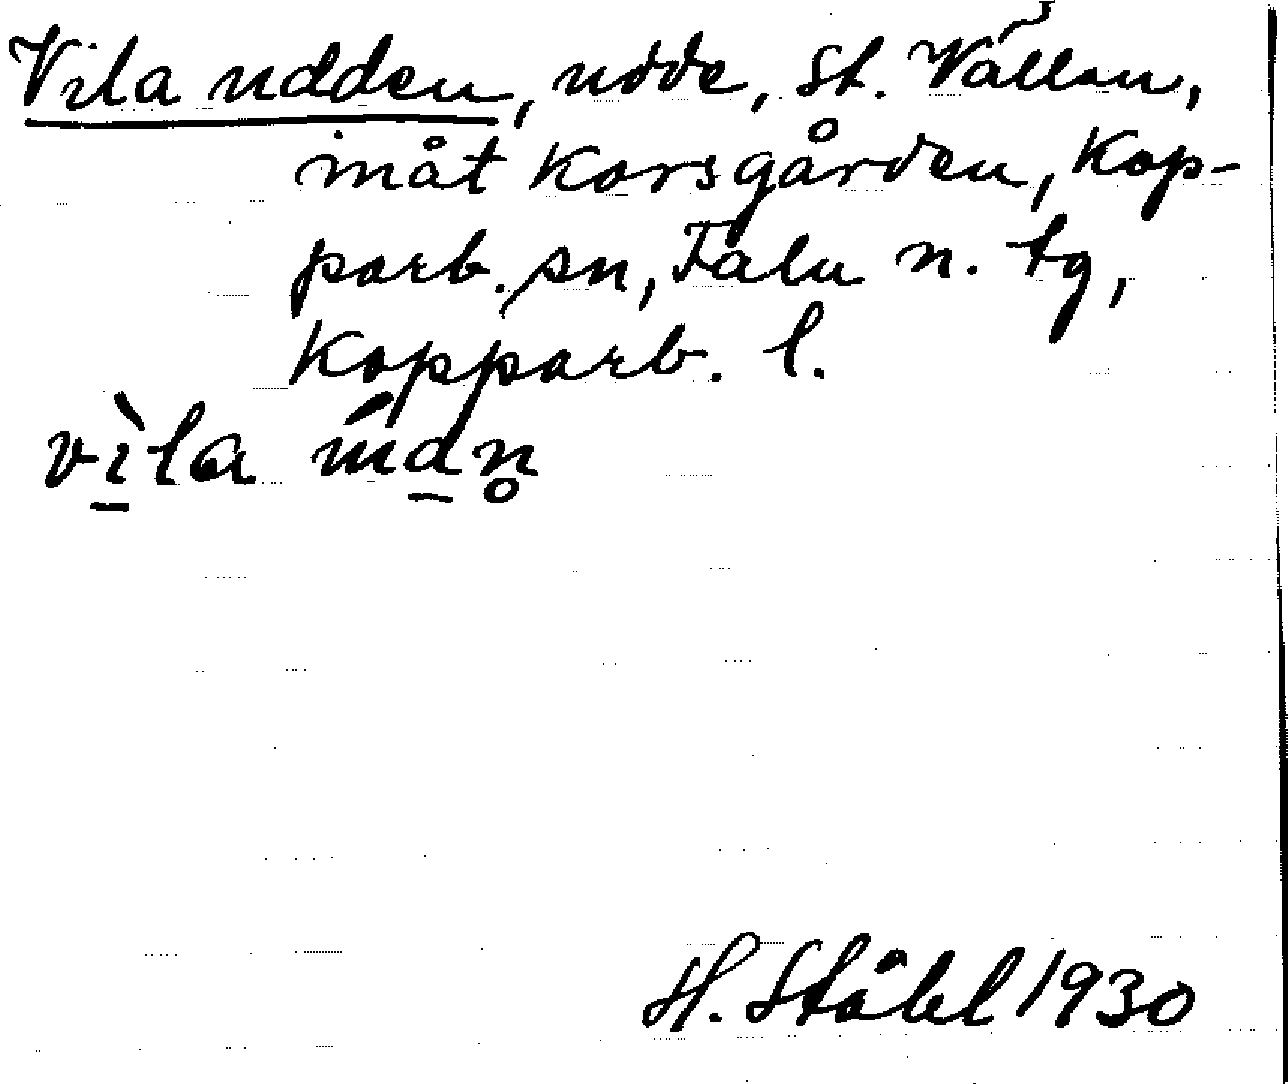 Vila udden, udde, St. Vällan,
inåt Korsgården, Kop-
parb. sn, Falu n. tg,
Kopparb. l.
vìla údn̥
H. Ståhl 1930